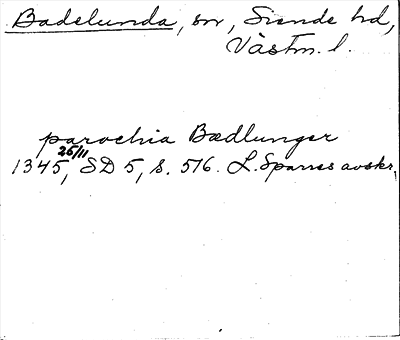 Badelunda, sn, Siende hd,
Västm. l.
parochia Bædlunger
1345 25/11, SD 5, s. 516. L. Sparres avskr.